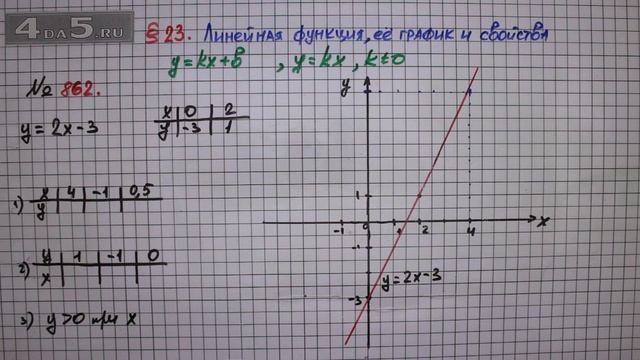 4DA5.RU
§ 23. Линейная функция, её график и свойства
y = kx + b , y = kx , k ≠ 0
№ 862.
y = 2x - 3
x 0 2
y -3 1
1) x 4 -1 0,5
y
2) y 1 -1 0
x
3) y > 0 при x
y
1
-1 0 1 2 4 x
-1
-3
y = 2x - 3